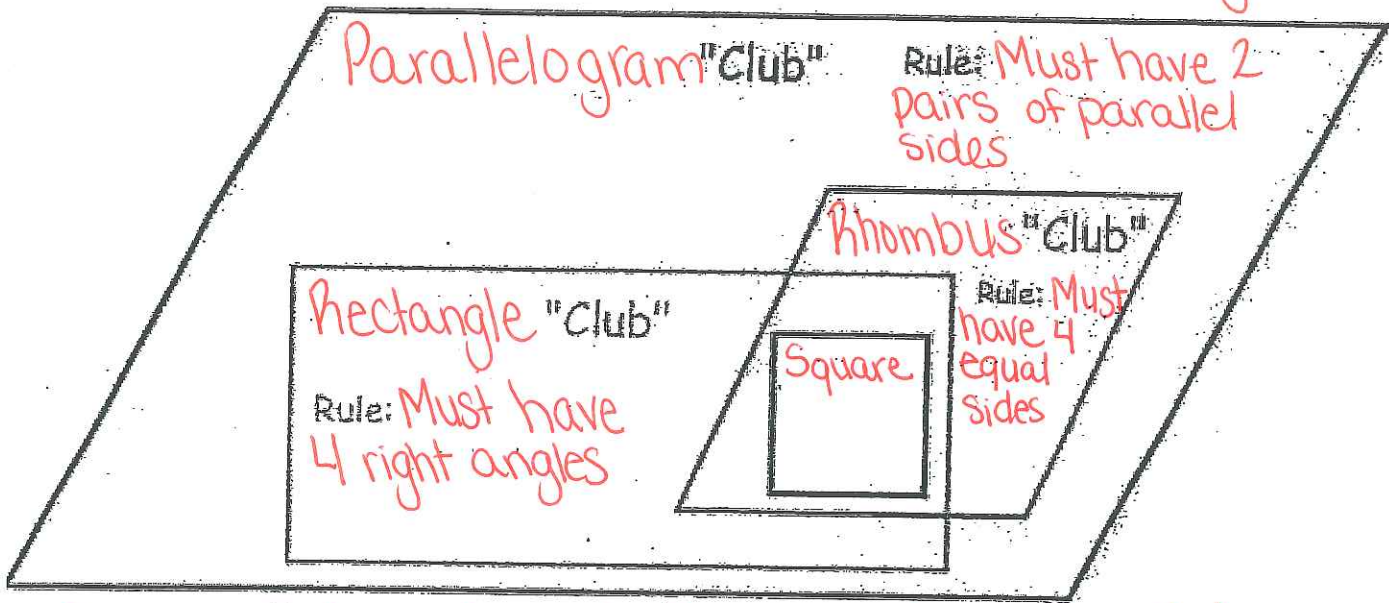 Parallelogram "Club"
Rule: Must have 2
pairs of parallel
sides
Rhombus "Club"
Rule: Must
have 4
equal
sides
Rectangle "Club"
Rule: Must have
4 right angles
Square